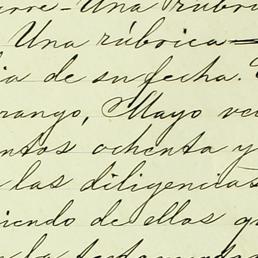 rre- Una rúbri
Una rúbrica
ia de su fecha.
rango, Mayo ve
ntos ochenta y
las diligencias
iendo de ellos q